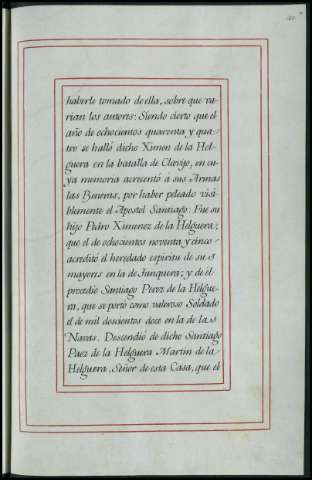 haberle tomado de ella, sobre que va-
rian los autores: Siendo cierto que el
año de ochocientos quarenta y qua-
tro se halló dicho Ximen de la Hel-
guera en la batalla de Clavijo, en cu-
ya memoria acrecentó a sus Armas
las Beneras, por haber peleado visi-
blemente el Apostol Santiago: Fue su
hijo Pedro Ximenez de la Helguera;
que el de ochocientos noventa y cinco
acreditó el heredado espiritu de sus
mayores en la de Junquera; y de él
procedio Santiago Perez de la Helgue-
ra, que se portó como valeroso Soldado
el de mil descientos doce en la de las
Navas. Descendió de dicho Santiago
Paez de la Helguera Martin de la
Helguera, Señor de esta Casa, que el